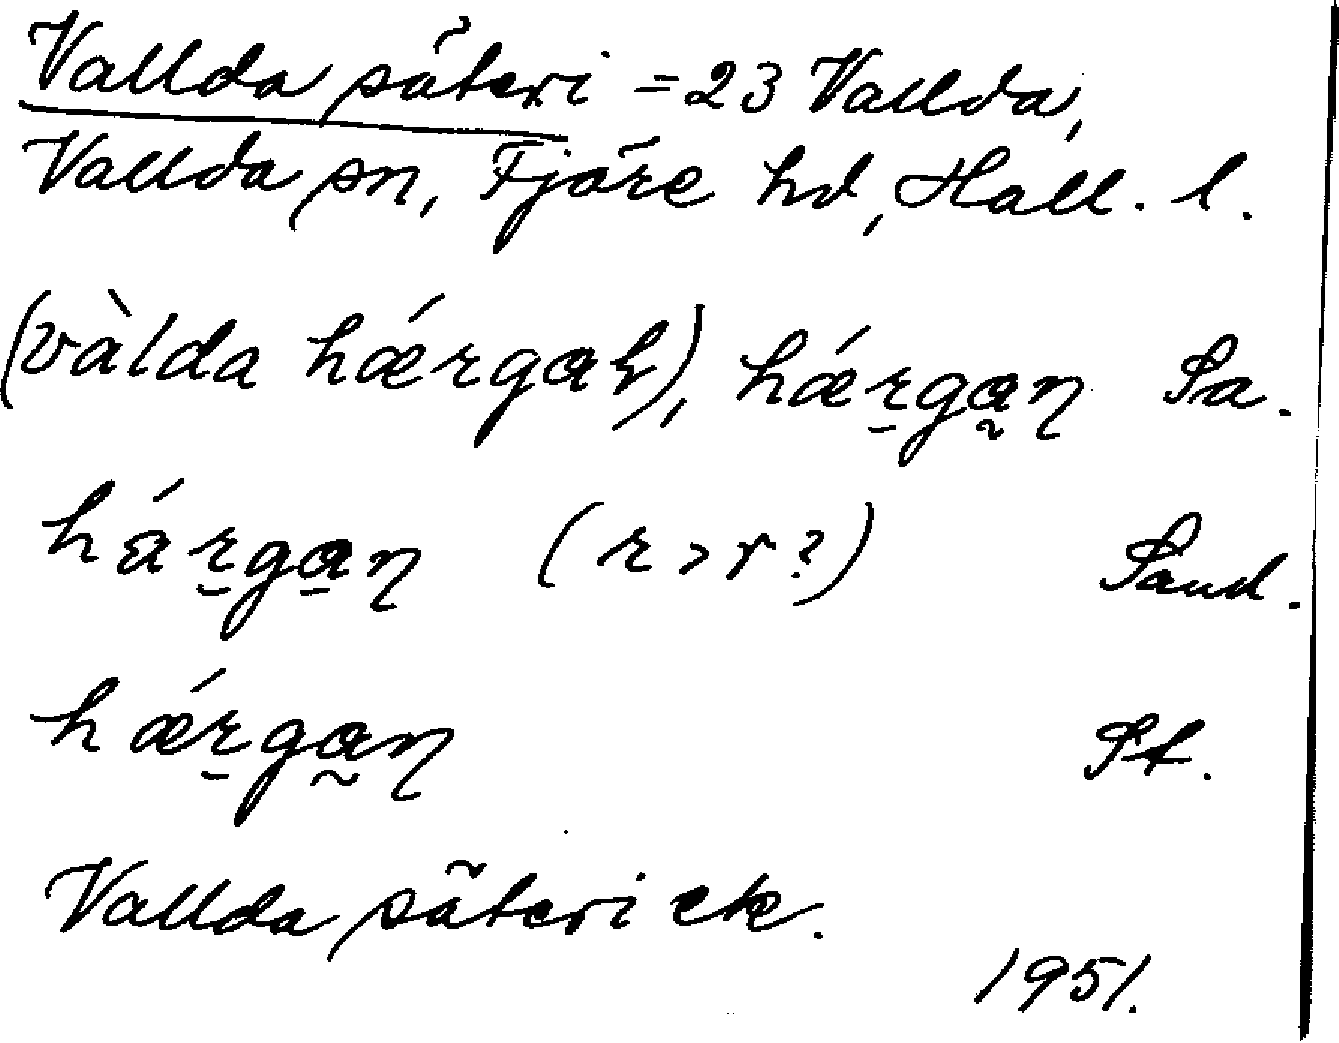 Vallda säteri = 23 Vallda,
Vallda sn, Fjäre hd, Hall. l.
(vàlda hǽrgaɧ), hǽr̠ga̰ɳ Sa.
hár̠ga̠ɳ (r > r?) Sand.
hǽr̠ga̰ɳ St.
Vallda säteri ek.
1951.